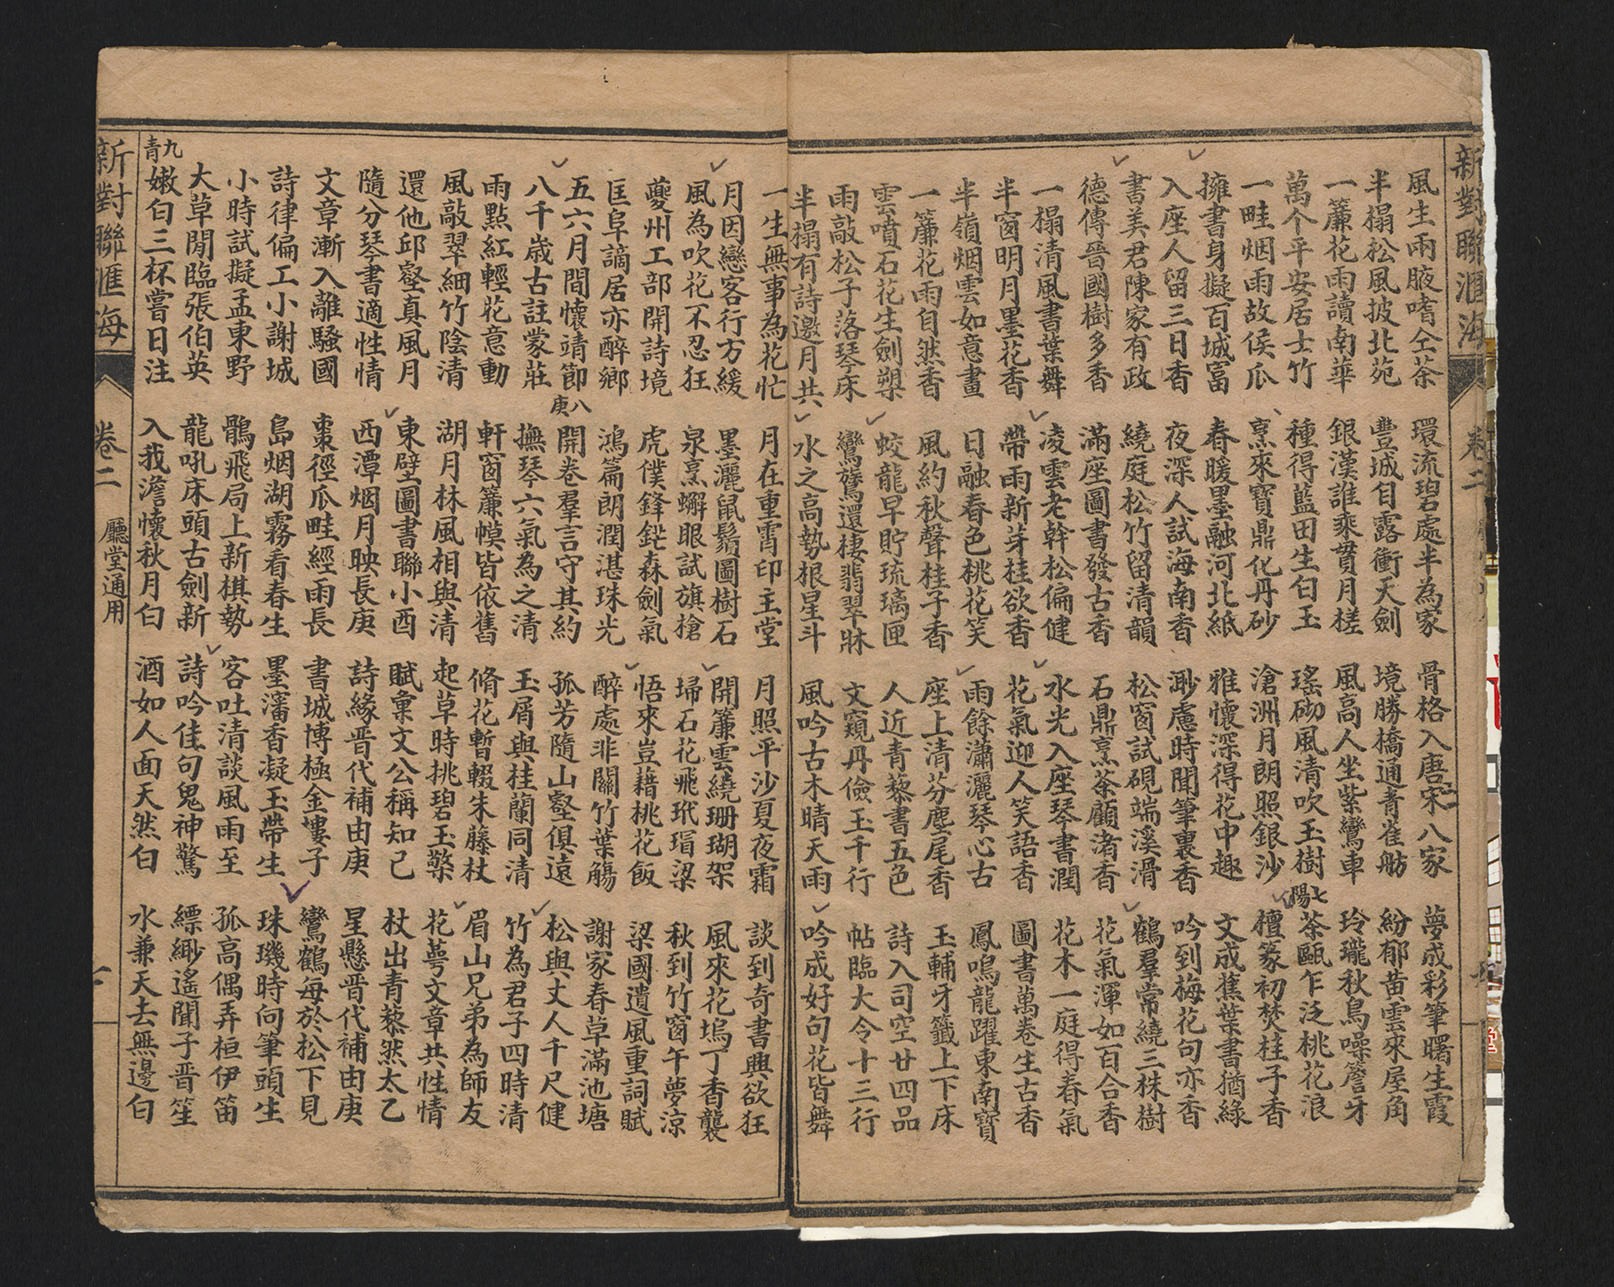 新對聯滙海 卷二
風生兩腋嗜仝茶 環流碧處半為家 骨格入唐宋八家 夢成彩筆曙生霞
半榻松風披北苑 豐城自露衝天劍 境勝橋通青雀舫 紛郁黃雲來屋角
一簾花雨讀南華 銀漢誰乘貫月槎 風高人坐紫鸞車 玲瓏秋鳥噪簷牙
萬个平安居士竹 種得藍田生白玉 瑤砌風清吹玉樹 七陽 茶甌乍泛桃花浪
一畦烟雨故侯瓜 烹來寶鼎化丹砂 滄洲月朗照銀沙 檀篆初焚桂子香
擁書身擬百城富 春暖墨融河北紙 雅懷深得花中趣 文成蕉葉書猶綠
入座人留三日香 夜深人試海南香 渺慮時聞筆裏香 吟到梅花句亦香
書美君陳家有政 繞庭松竹留清韻 松窗試硯端溪滑 鶴羣常繞三株樹
德傳晉國樹多香 滿座圖書發古香 石鼎烹茶顧渚香 花氣渾如百合香
一榻清風書葉舞 凌雲老幹松偏健 水光入座琴書潤 花木一庭得春氣
半窗明月墨花香 帶雨新芽桂欲香 花氣迎人笑語香 圖書萬卷生古香
半嶺烟雲如意畫 日融春色桃花笑 雨餘瀟灑琴心古 鳳鳴龍躍東南寶
一簾花雨自然香 風約秋聲桂子香 座上清芬麈尾香 玉輔牙籤上下床
雲噴石花生劍槊 蛟龍早貯琉璃匣 人近青藜書五色 詩入司空廿四品
雨敲松子落琴床 鸞鶩還棲翡翠牀 文窺丹儉玉千行 帖臨大令十三行
半榻有詩邀月共 水之高勢根星斗 風吟古木晴天雨 吟成好句花皆舞
一生無事為花忙 月在重霄印主堂 月照平沙夏夜霜 談到奇書興欲狂
月因戀客行方緩 墨灑鼠鬚圖樹石 開簾雲繞珊瑚架 風來花塢丁香襲
風為吹花不忍狂 泉烹蠏眼試旗槍 埽石花飛玳瑁梁 秋到竹窗午夢涼
夔州工部開詩境 虎僕鋒鋩森劍氣 悟來豈藉桃花飯 梁國遺風重詞賦
匡阜謫居亦醉鄉 鴻篇朗潤湛珠光 醉處非關竹葉觴 謝家春草滿池塘
五六月間懷靖節 八庚 開卷羣言守其約 孤芳隨山壑俱遠 松與丈人千尺健
八千歲古註蒙莊 撫琴六氣為之清 玉屑與桂蘭同清 竹為君子四時清
雨點紅輕花意動 軒窗簾幙皆依舊 脩花暫輟朱藤杖 眉山兄弟為師友
風敲翠細竹陰清 湖月林風相與清 起草時挑碧玉檠 花萼文章共性情
還他邱壑真風月 東壁圖書聯小酉 賦稟文公稱知己 杖出青藜然太乙
隨分琴書適性情 西潭烟月映長庚 詩緣晋代補由庚 星懸晋代補由庚
文章漸入離騷國 棗徑瓜畦經雨長 書城博極金樓子 鸞鶴每於松下見
詩律偏工小謝城 島烟湖霧看春生 墨瀋香凝玉帶生 珠璣時向筆頭生
小時試擬孟東野 鶻飛局上新棋勢 客吐清談風雨至 孤高偶弄桓伊笛
大草閒臨張伯英 龍吼床頭古劍新 詩吟佳句鬼神驚 縹緲遙聞子晋笙
九青 嫩白三杯嘗日注 入我澹懷秋月白 酒如人面天然白 水兼天去無邊白
新對聯滙海 卷二 廳堂通用